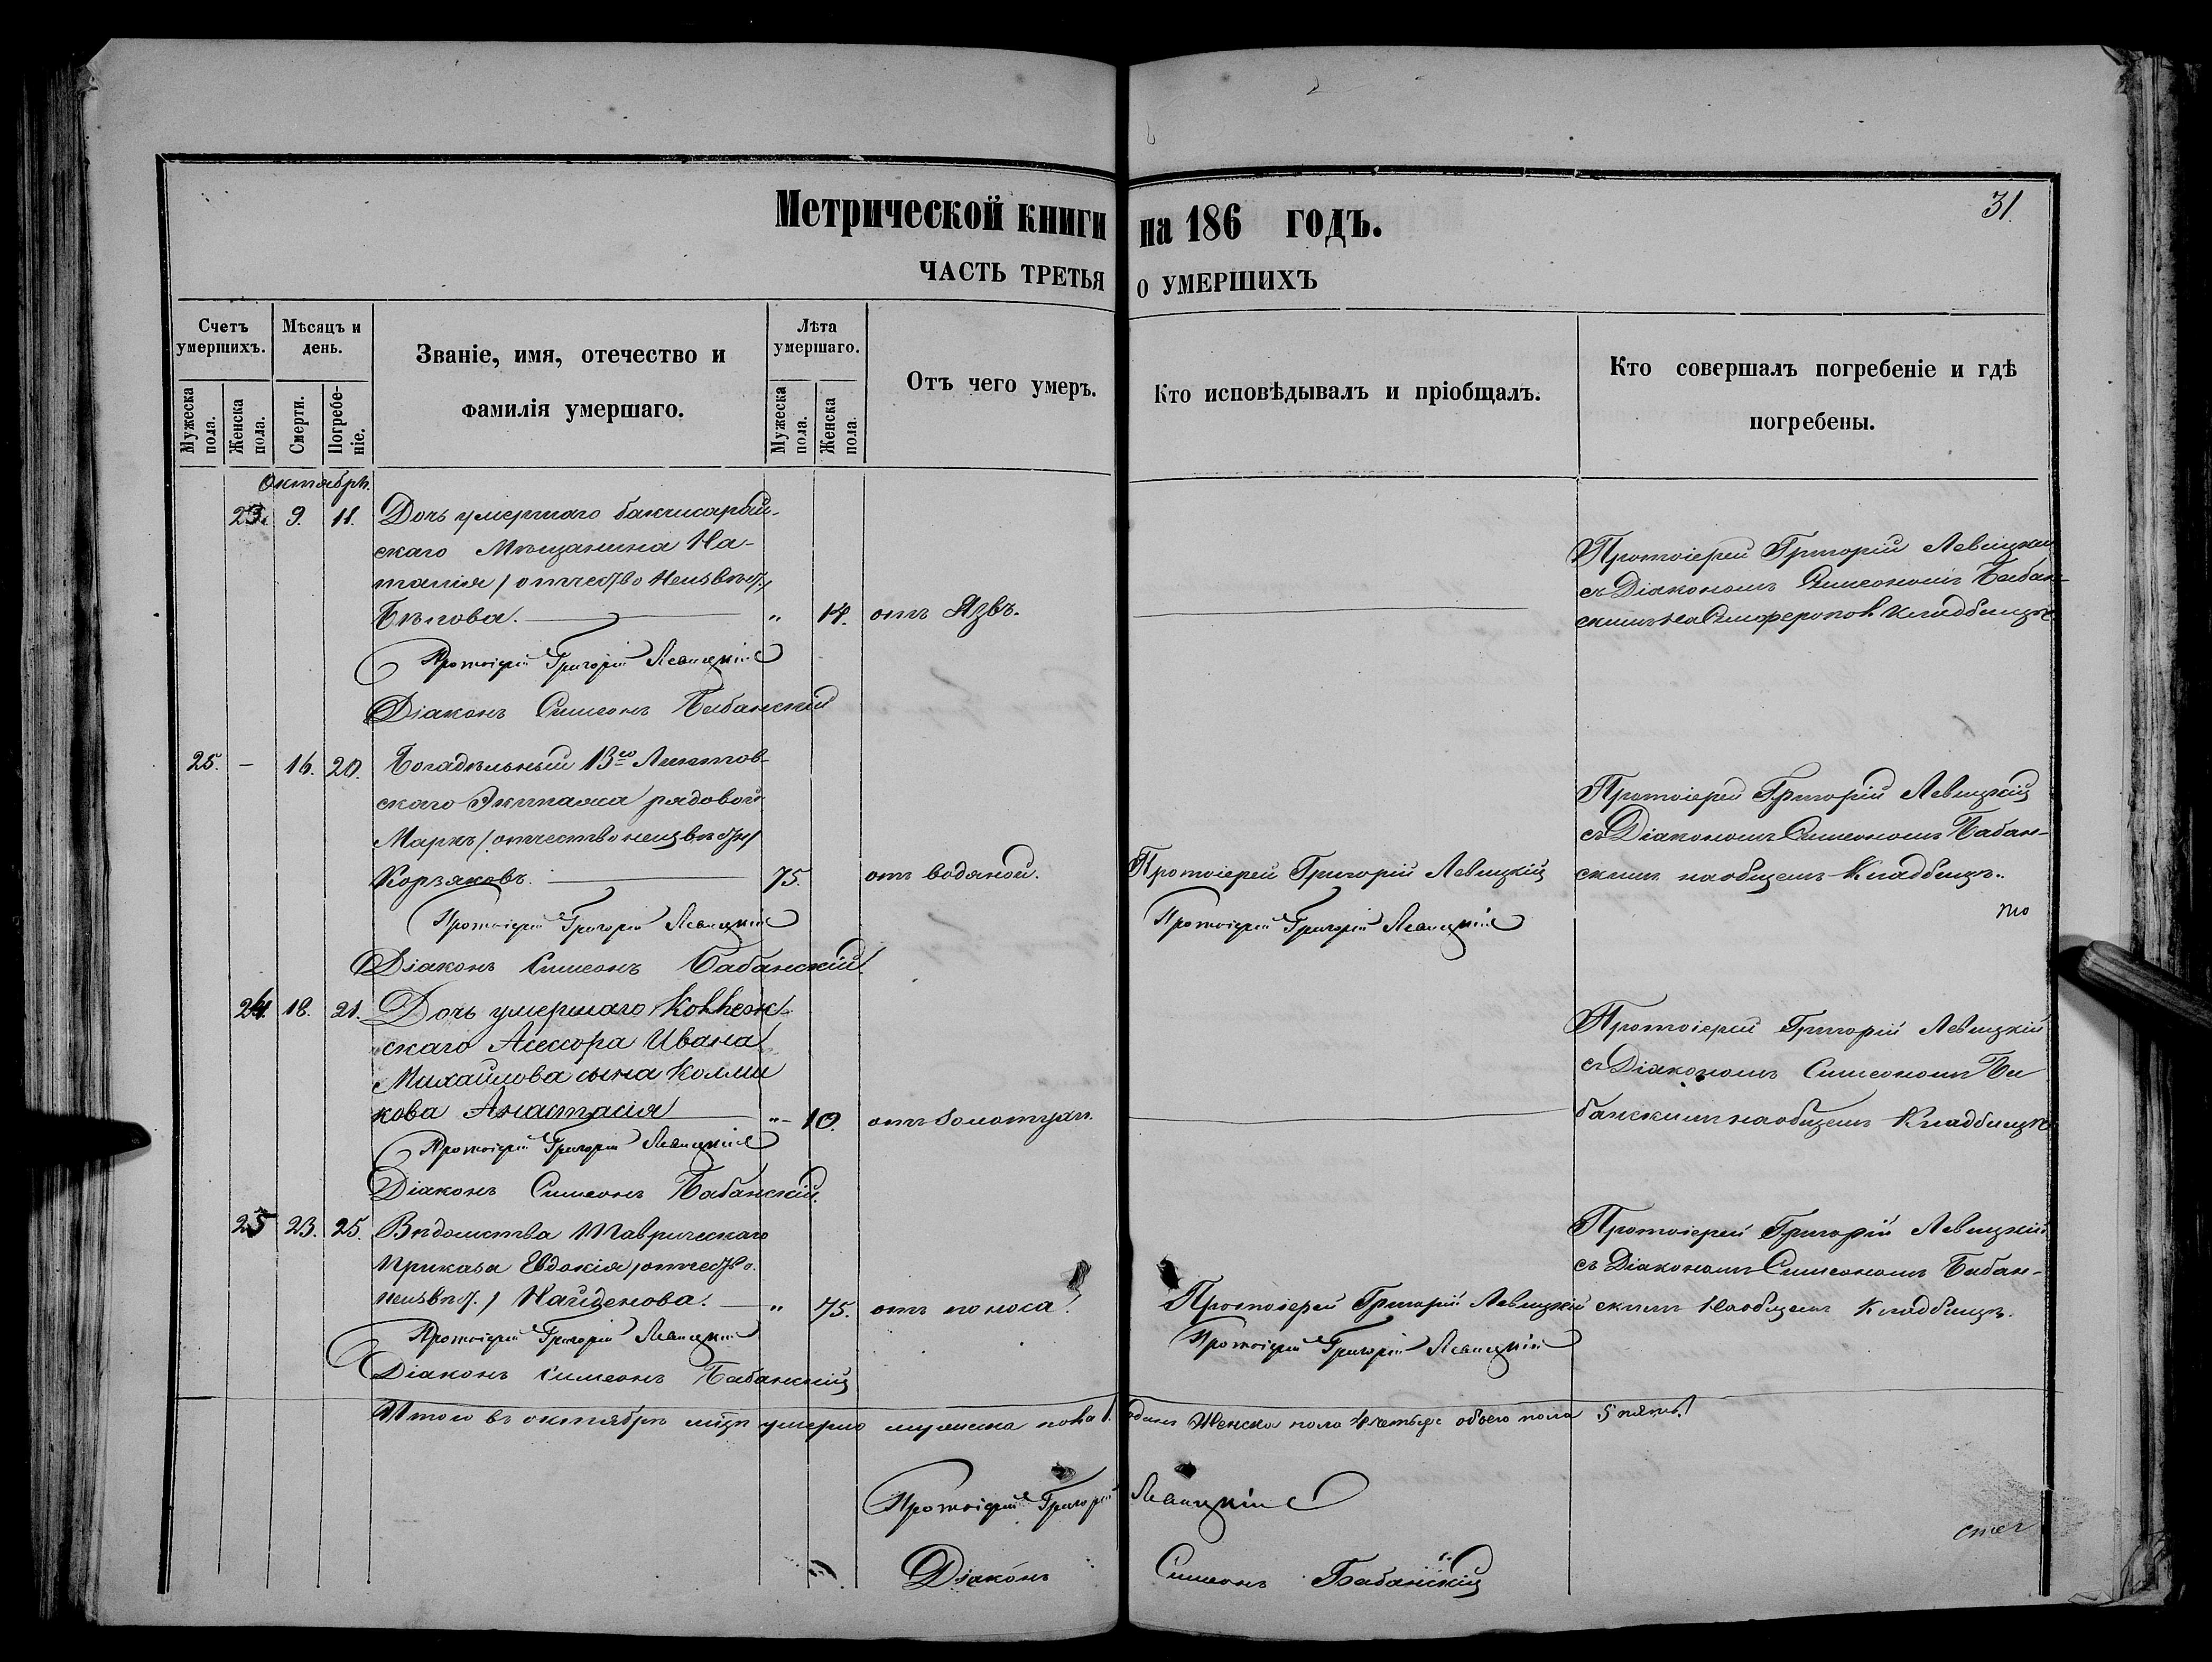 31.
Метрической книги на 186 годъ.
ЧАСТЬ ТРЕТЬЯ О УМЕРШИХЪ
Счетъ умершихъ.
Мужеска пола.
Женска пола.
Мѣсяцъ и день.
Смерти.
Погребе-
ніе.
Званіе, имя, отечество и
фамилія умершаго.
Лѣта умершаго.
Мужеска пола.
Женска пола.
Отъ чего умеръ.
Кто исповѣдывалъ и пріобщалъ.
Кто совершалъ погребеніе и гдѣ
погребены.
Октябрь
23. 9. 11. Дочь умершаго бакчисарай-
скаго Мѣщанина На-
талія /отчество неизвѣст./
Бѣлова. " 14. отъ Язвъ.
Протоіерей Григорій Левицкій
съ Діакономъ Симеономъ Бабан-
скимъ на Симфероpол кладбищѣ
Протоіерей Григорій Левицкій
Діаконъ Симеонъ Бабанскій
25. - 16. 20. Богадѣльный 13го Ластов-
скаго Экипажа рядовой
Маркъ /отчество неизвѣстн/
Корзяковъ. 75. отъ водяной.
Протоіерей Григорій Левицкій
Протоіерей Григорій Левицкій
Протоіерей Григорій Левицкій
съ Діакономъ Симеономъ Бабан-
скимъ на общемъ Кладбищѣ.
то
Протоіерей Григорій Левицкій
Діаконъ Симеонъ Бабанскій
24. 18. 21. Дочь умершаго Коллеж-
скаго Асессора Ивана
Михайлова сына Колми
кова Анастасія "- 10. отъ Золотухи.
Протоіерей Григорій Левицкій
съ Діакономъ Симеономъ Ба
банскимъ на общемъ Кладбищѣ
Протоіерей Григорій Левицкій
Діаконъ Симеонъ Бабанскій.
25 23. 25. Вѣдомства Таврическаго
Приказа Евдокія /отчество
неизвѣст./ Найденова. " 75. отъ поноса.
Протоіерей Григорій Левицкій
Протоіерей Григорій Левицкій
Протоіерей Григорій Левицкій
съ Діакономъ Симеономъ Бабан-
скимъ на общемъ Кладбищѣ.
Протоіерей Григорій Левицкій
Діаконъ Симеонъ Бабанскій
Итого въ октябрѣ мѣцѣ умерло мужеска пола 1. одинъ Женска пола 4 четыре обоего пола 5 пять.
Протоіерей Григорій Левицкій
Діаконъ Симеонъ Бабанскій